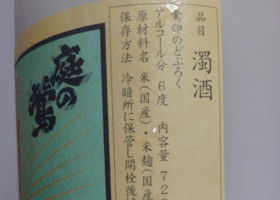 品目 濁酒
鷲印のどぶろく
アルコール分 6度 内容量 720
原材料名 米(国産)・米麹(国産
保存方法 冷暗所に保管し開栓後
庭の鶯